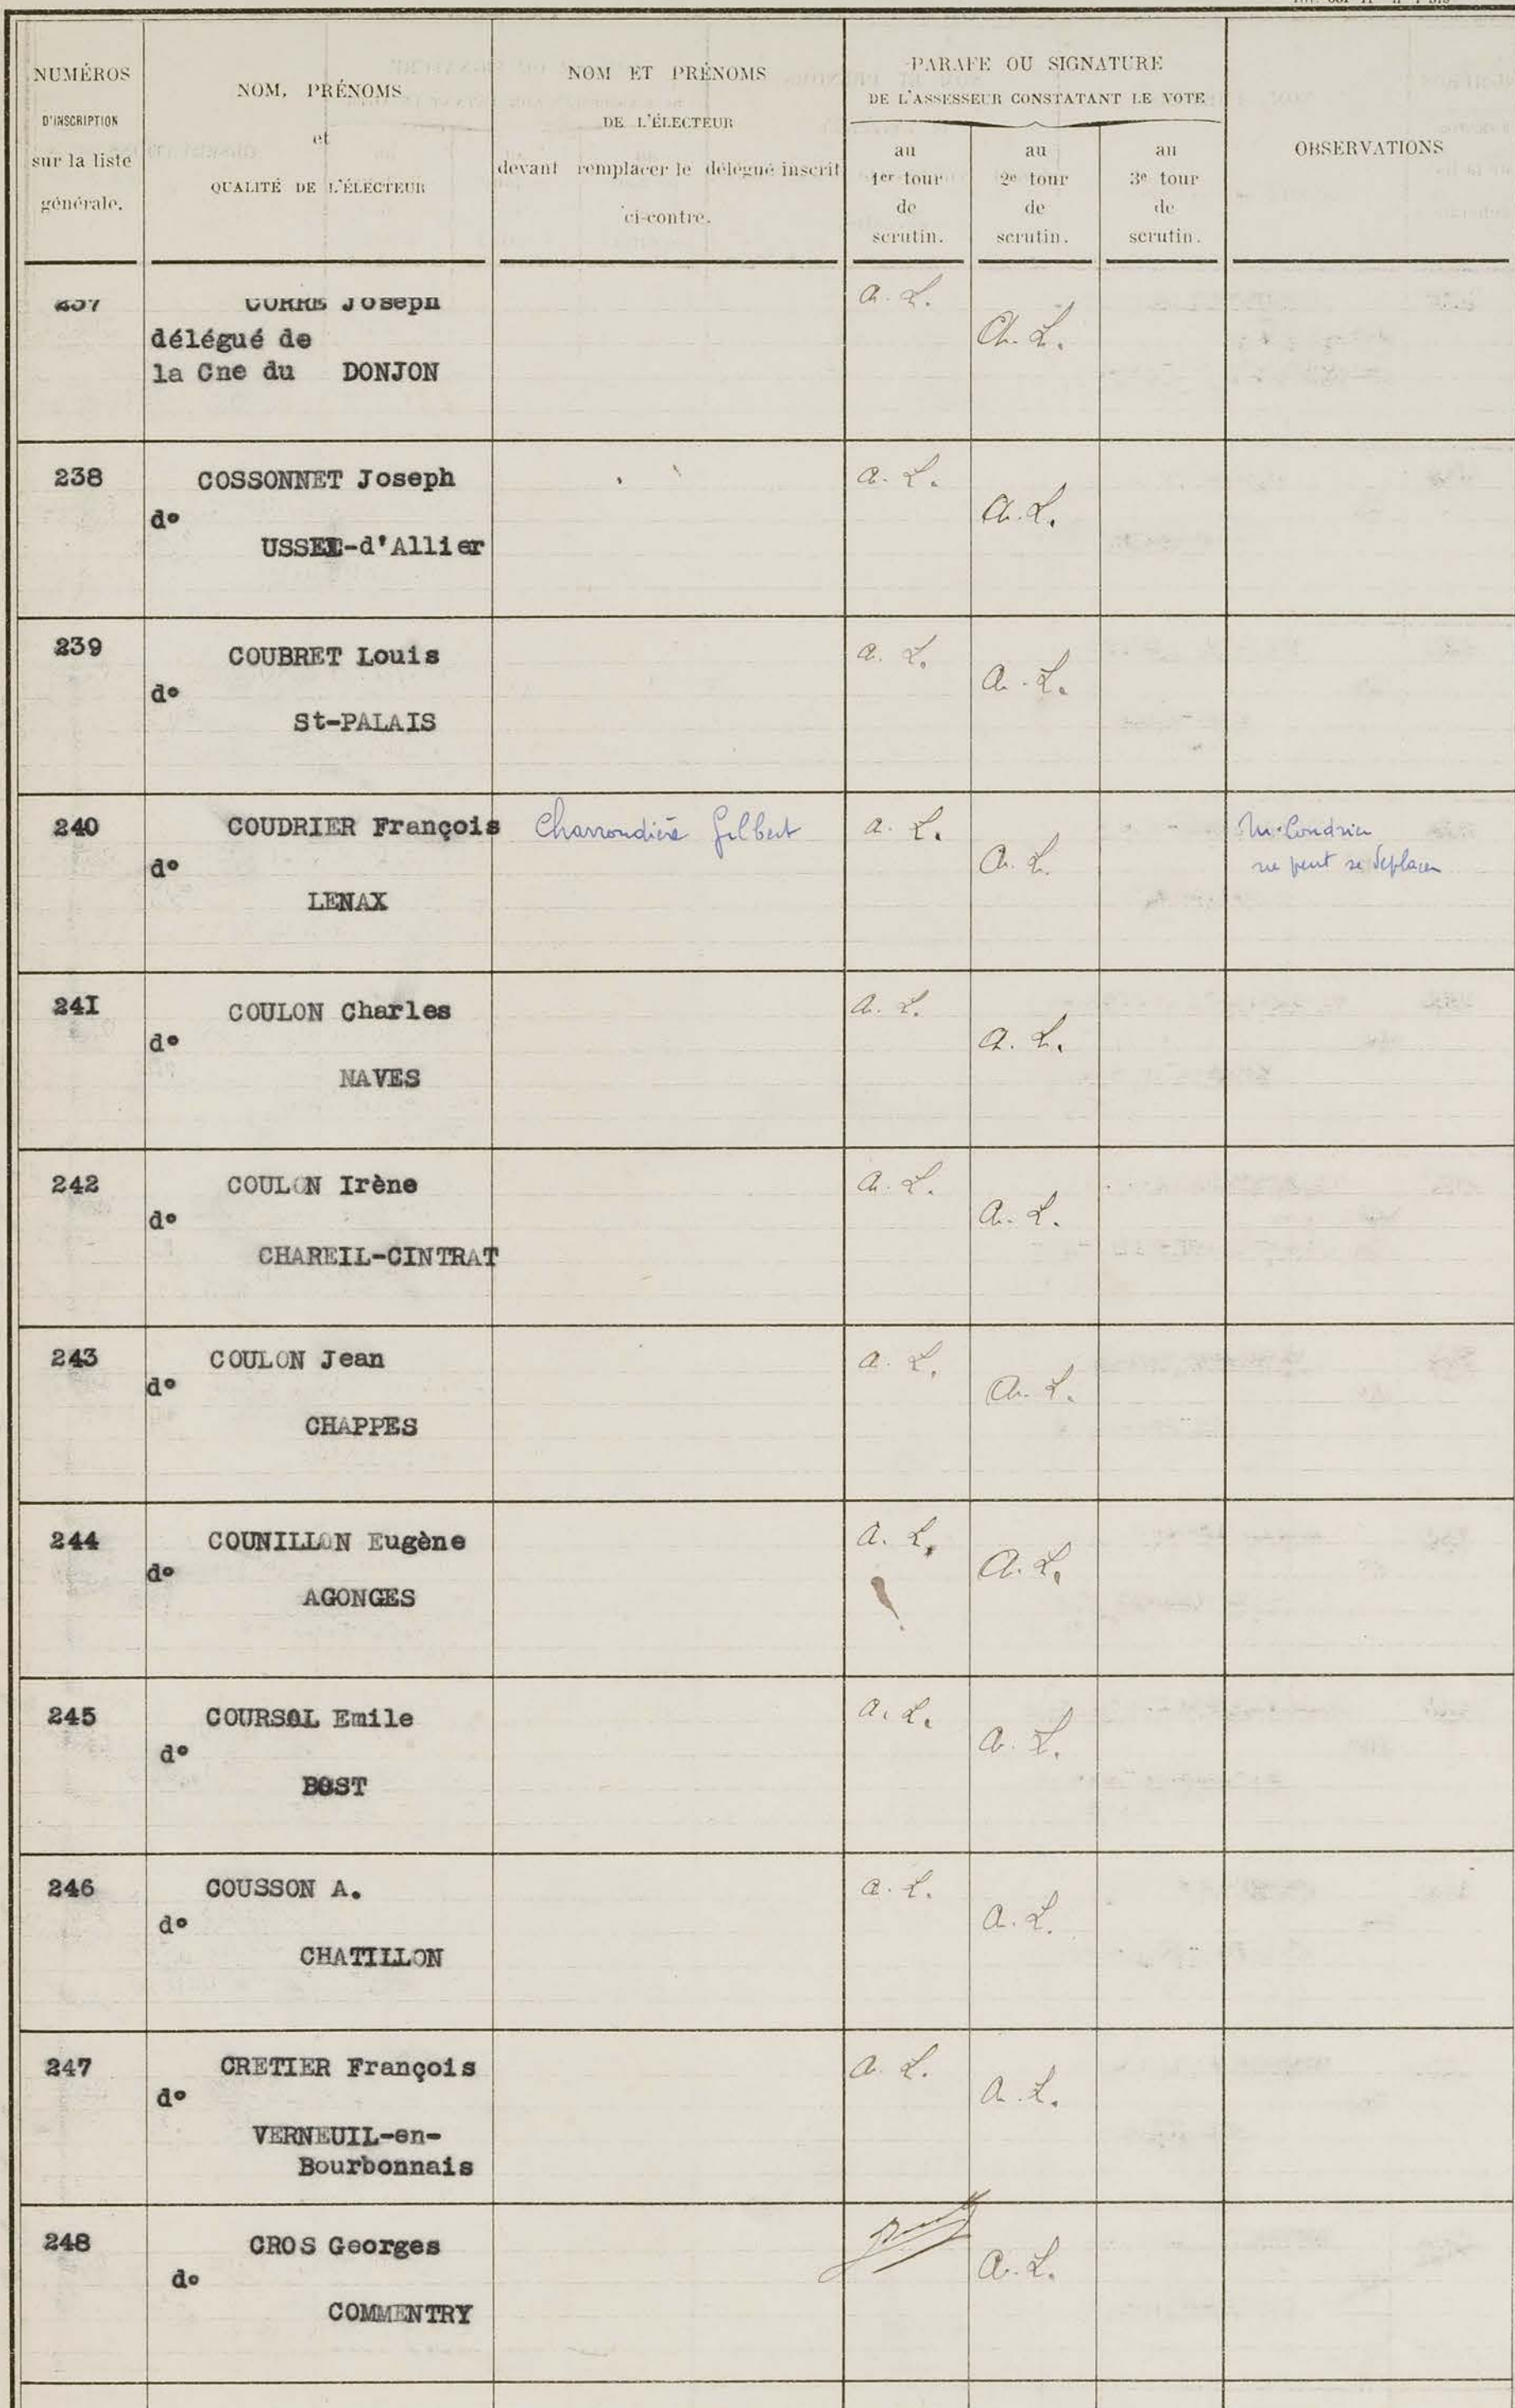 NUMÉROS
D'INSCRIPTION
sur la liste
générale.
NOM, PRÉNOMS
et
QUALITÉ DE L'ÉLECTEUR
NOM ET PRÉNOMS
DE L'ÉLECTEUR
devant remplacer le délégué inscrit
ci-contre.
PARAFE OU SIGNATURE
DE L'ASSESSEUR CONSTATANT LE VOTE
au
1er tour
de
scrutin.
au
2e tour
de
scrutin.
au
3e tour
de
scrutin.
OBSERVATIONS
237 CORRE Joseph a. L.
délégué de a. L.
la Cne du DONJON
238 COSSONNET Joseph a. L.
d° a. L.
USSEL-d'Allier
239 COUBRET Louis a. L.
d° a. L.
St-PALAIS
240 COUDRIER François Charrondière Gilbert a. L. M. Coudrier
d° a. L. ne peut se déplacer
LENAX
24I COULON Charles a. L.
d° a. L.
NAVES
242 COULON Irène a. L.
d° a. L.
CHAREIL-CINTRAT
243 COULON Jean a. L.
d° a. L.
CHAPPES
244 COUNILLON Eugène a. L.
d° a. L.
AGONGES
245 COURSOL Emile a. L.
d° a. L.
BOST
246 COUSSON A. a. L.
d° a. L.
CHATILLON
247 CRETIER François a. L.
d° a. L.
VERNEUIL-en-
Bourbonnais
248 CROS Georges
d° a. L.
COMMENTRY